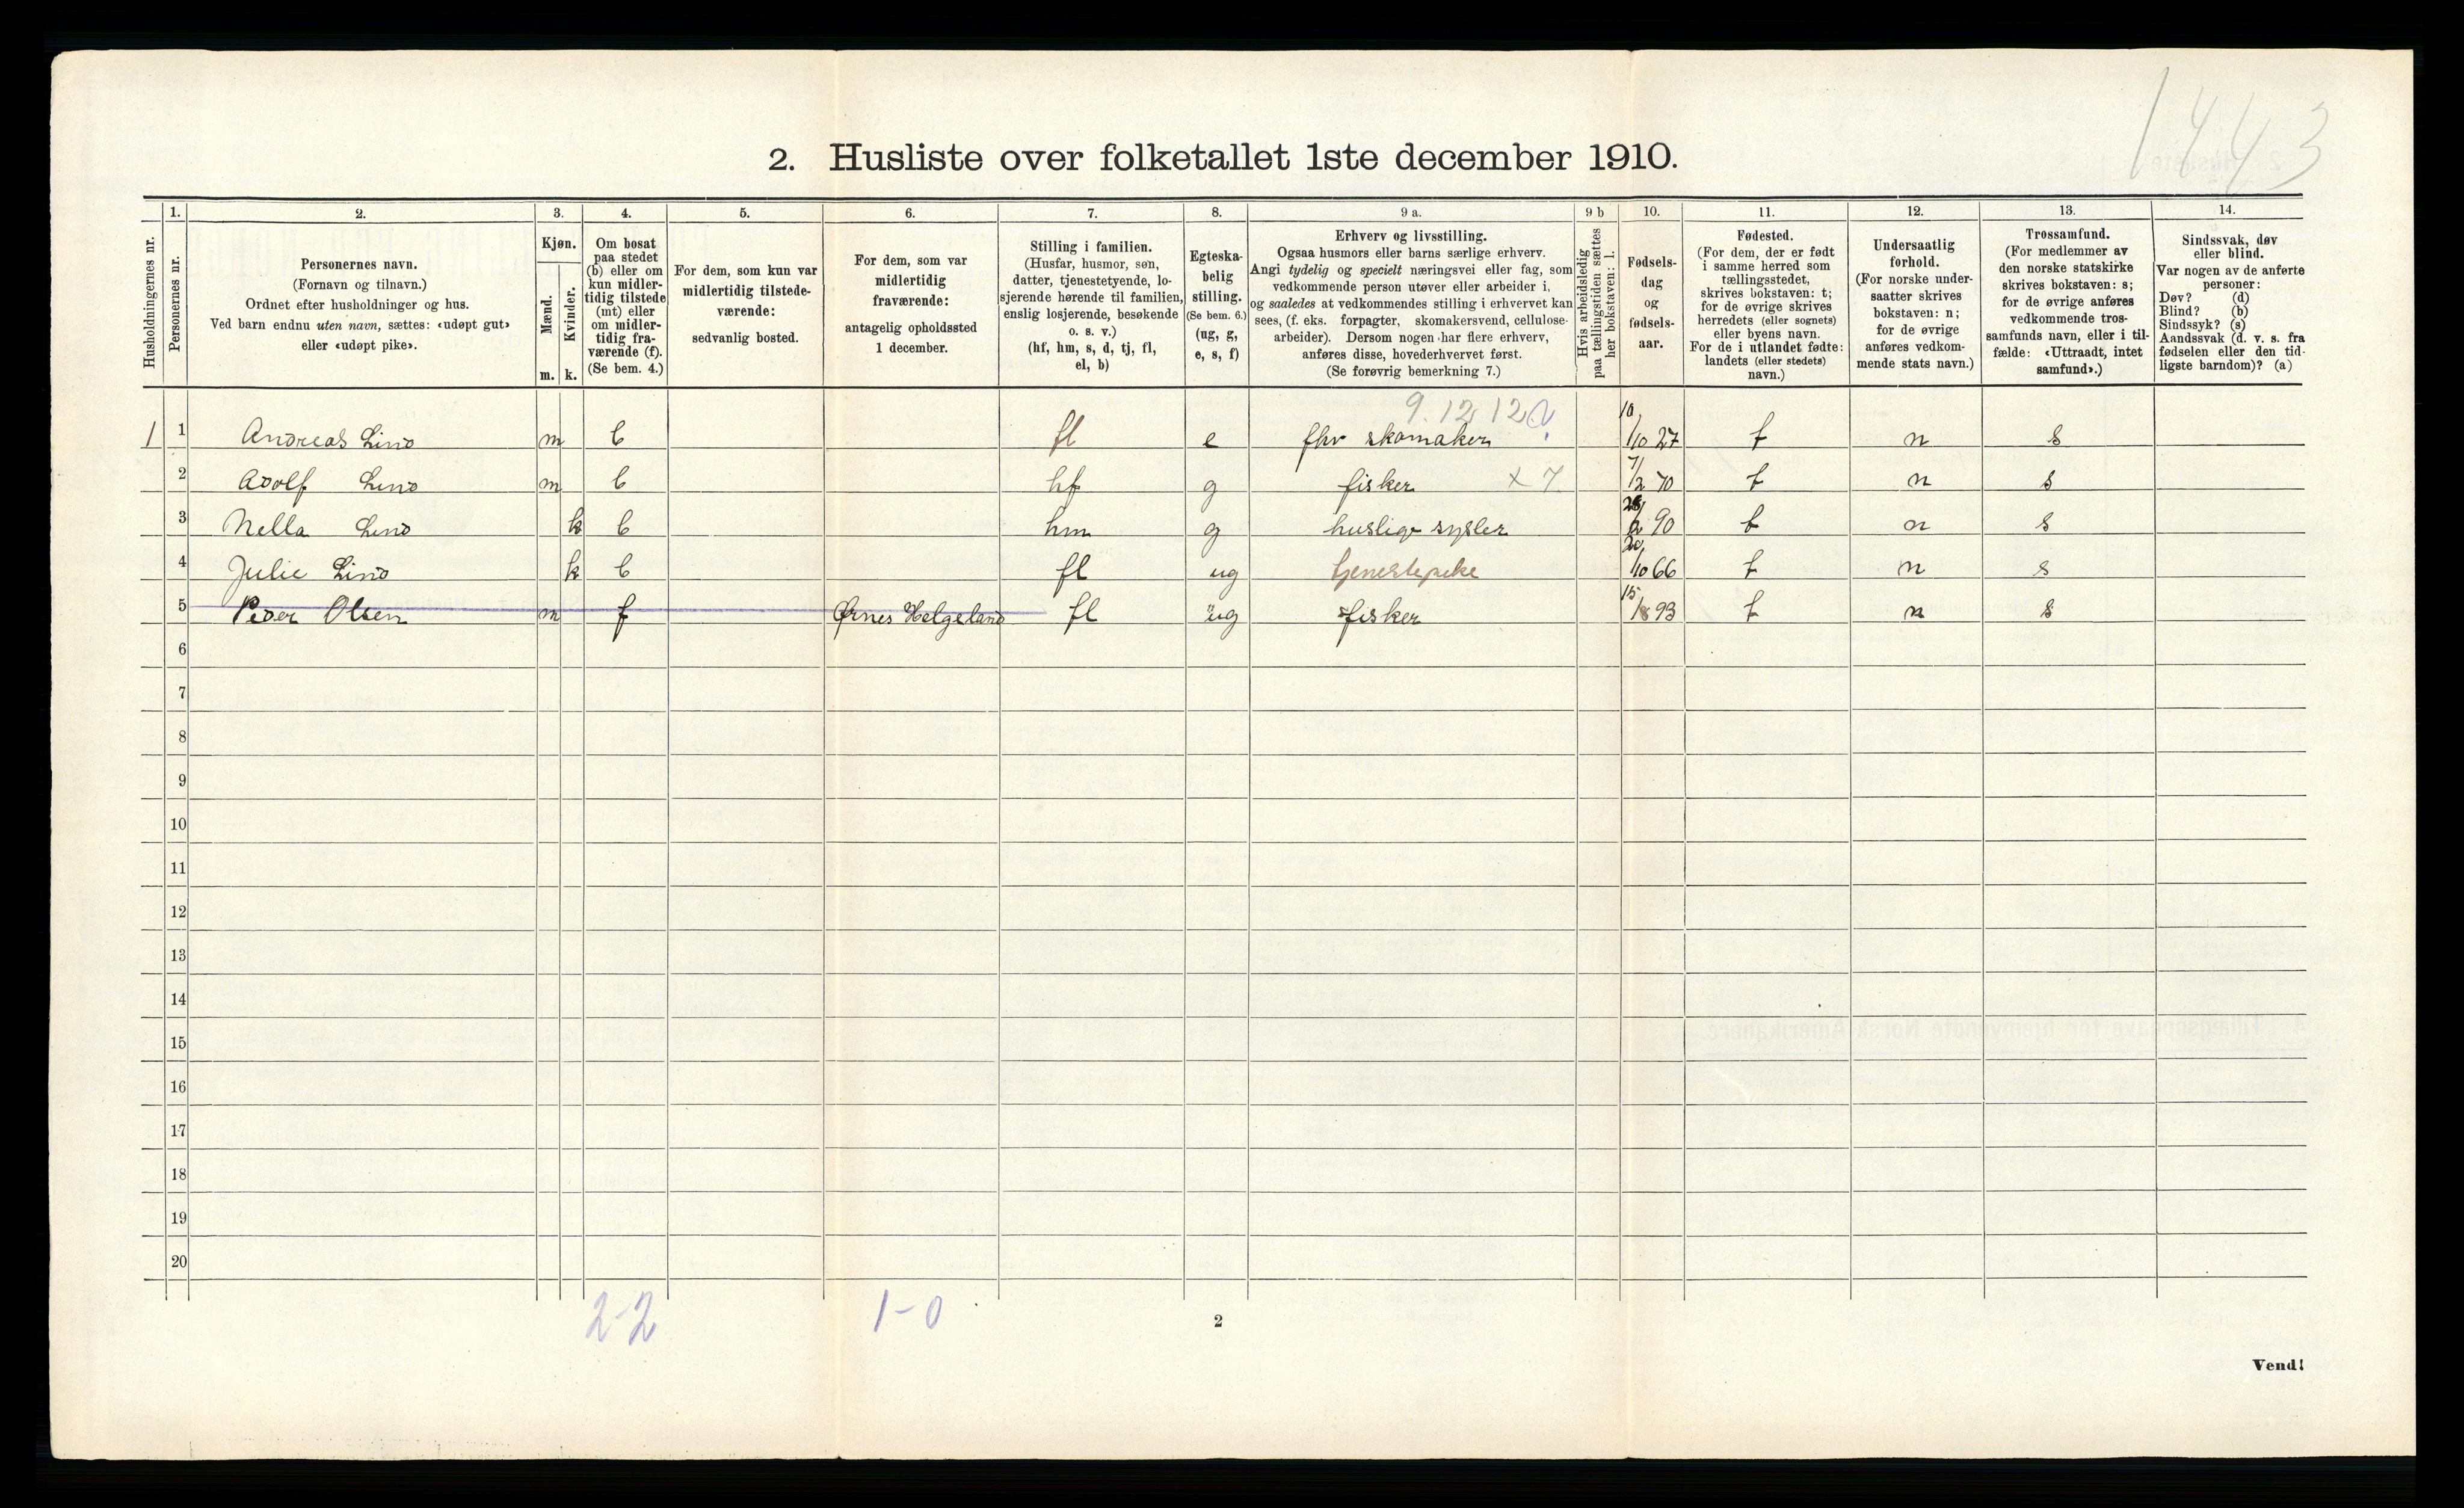 1443
2. Husliste over folketallet 1ste december 1910.
Husholdningernes nr.
1. Personernes nr.
2. Personernes navn. (Fornavn og tilnavn.) Ordnet efter husholdninger og hus. Ved barn endnu uten navn, sættes: «udøpt gut» eller «udøpt pike».
3. Kjøn. Mænd. m. Kvinder. k.
4. Om bosat paa stedet (b) eller om kun midlertidig tilstede (mt) eller om midlertidig fraværende (f). (Se bem. 4.)
5. For dem, som kun var midlertidig tilstedeværende: sedvanlig bosted.
6. For dem, som var midlertidig fraværende: antagelig opholdssted 1 december.
7. Stilling i familien. (Husfar, husmor, søn, datter, tjenestetyende, losjerende hørende til familien, enslig losjerende, besøkende o. s. v.) (hf, hm, s, d, tj, fl, el, b)
8. Egteskabelig stilling. (Se bem. 6.) (ug, g, e, s, f)
9 a. Erhverv og livsstilling. Ogsaa husmors eller barns særlige erhverv. Angi tydelig og specielt næringsvei eller fag, som vedkommende person utøver eller arbeider i, og saaledes at vedkommendes stilling i erhvervet kan sees, (f. eks. forpagter, skomakersvend, cellulosearbeider). Dersom nogen har flere erhverv, anføres disse, hovederhvervet først. (Se forøvrig bemerkning 7.)
9 b Hvis arbeidsledig paa tællingstiden sættes her bokstaven: l.
10. Fødselsdag og fødselsaar.
11. Fødested. (For dem, der er født i samme herred som tællingsstedet, skrives bokstaven: t; for de øvrige skrives herredets (eller sognets) eller byens navn. For de i utlandet fødte: landets (eller stedets) navn.)
12. Undersaatlig forhold. (For norske undersaatter skrives bokstaven: n; for de øvrige anføres vedkommende stats navn.)
13. Trossamfund. (For medlemmer av den norske statskirke skrives bokstaven: s; for de øvrige anføres vedkommende trossamfunds navn, eller i tilfælde: «Uttraadt, intet samfund».)
14. Sindssvak, døv eller blind. Var nogen av de anførte personer: Døv? (d) Blind? (b) Sindssyk? (s) Aandssvak (d. v. s. fra fødselen eller den tidligste barndom)? (a)
9.12 12
1 1 Andreas Lind m b fl e fhv skomaker 10/10 27 t n s
2 Adolf Lind m b hf g fisker x 7 7/2 70 t n s
3 Nella Lind k b hm g huslige sysler 90 t n s
4 Julie Lind k b fl ug tjenestepike 20/10 66 t n s
5 Peder Olsen m f Ørnes Helgeland fl ug fisker 15/8 93 t n s
6
7
8
9
10
11
12
13
14
15
16
17
18
19
20
2-2 1-0
2
Vend!